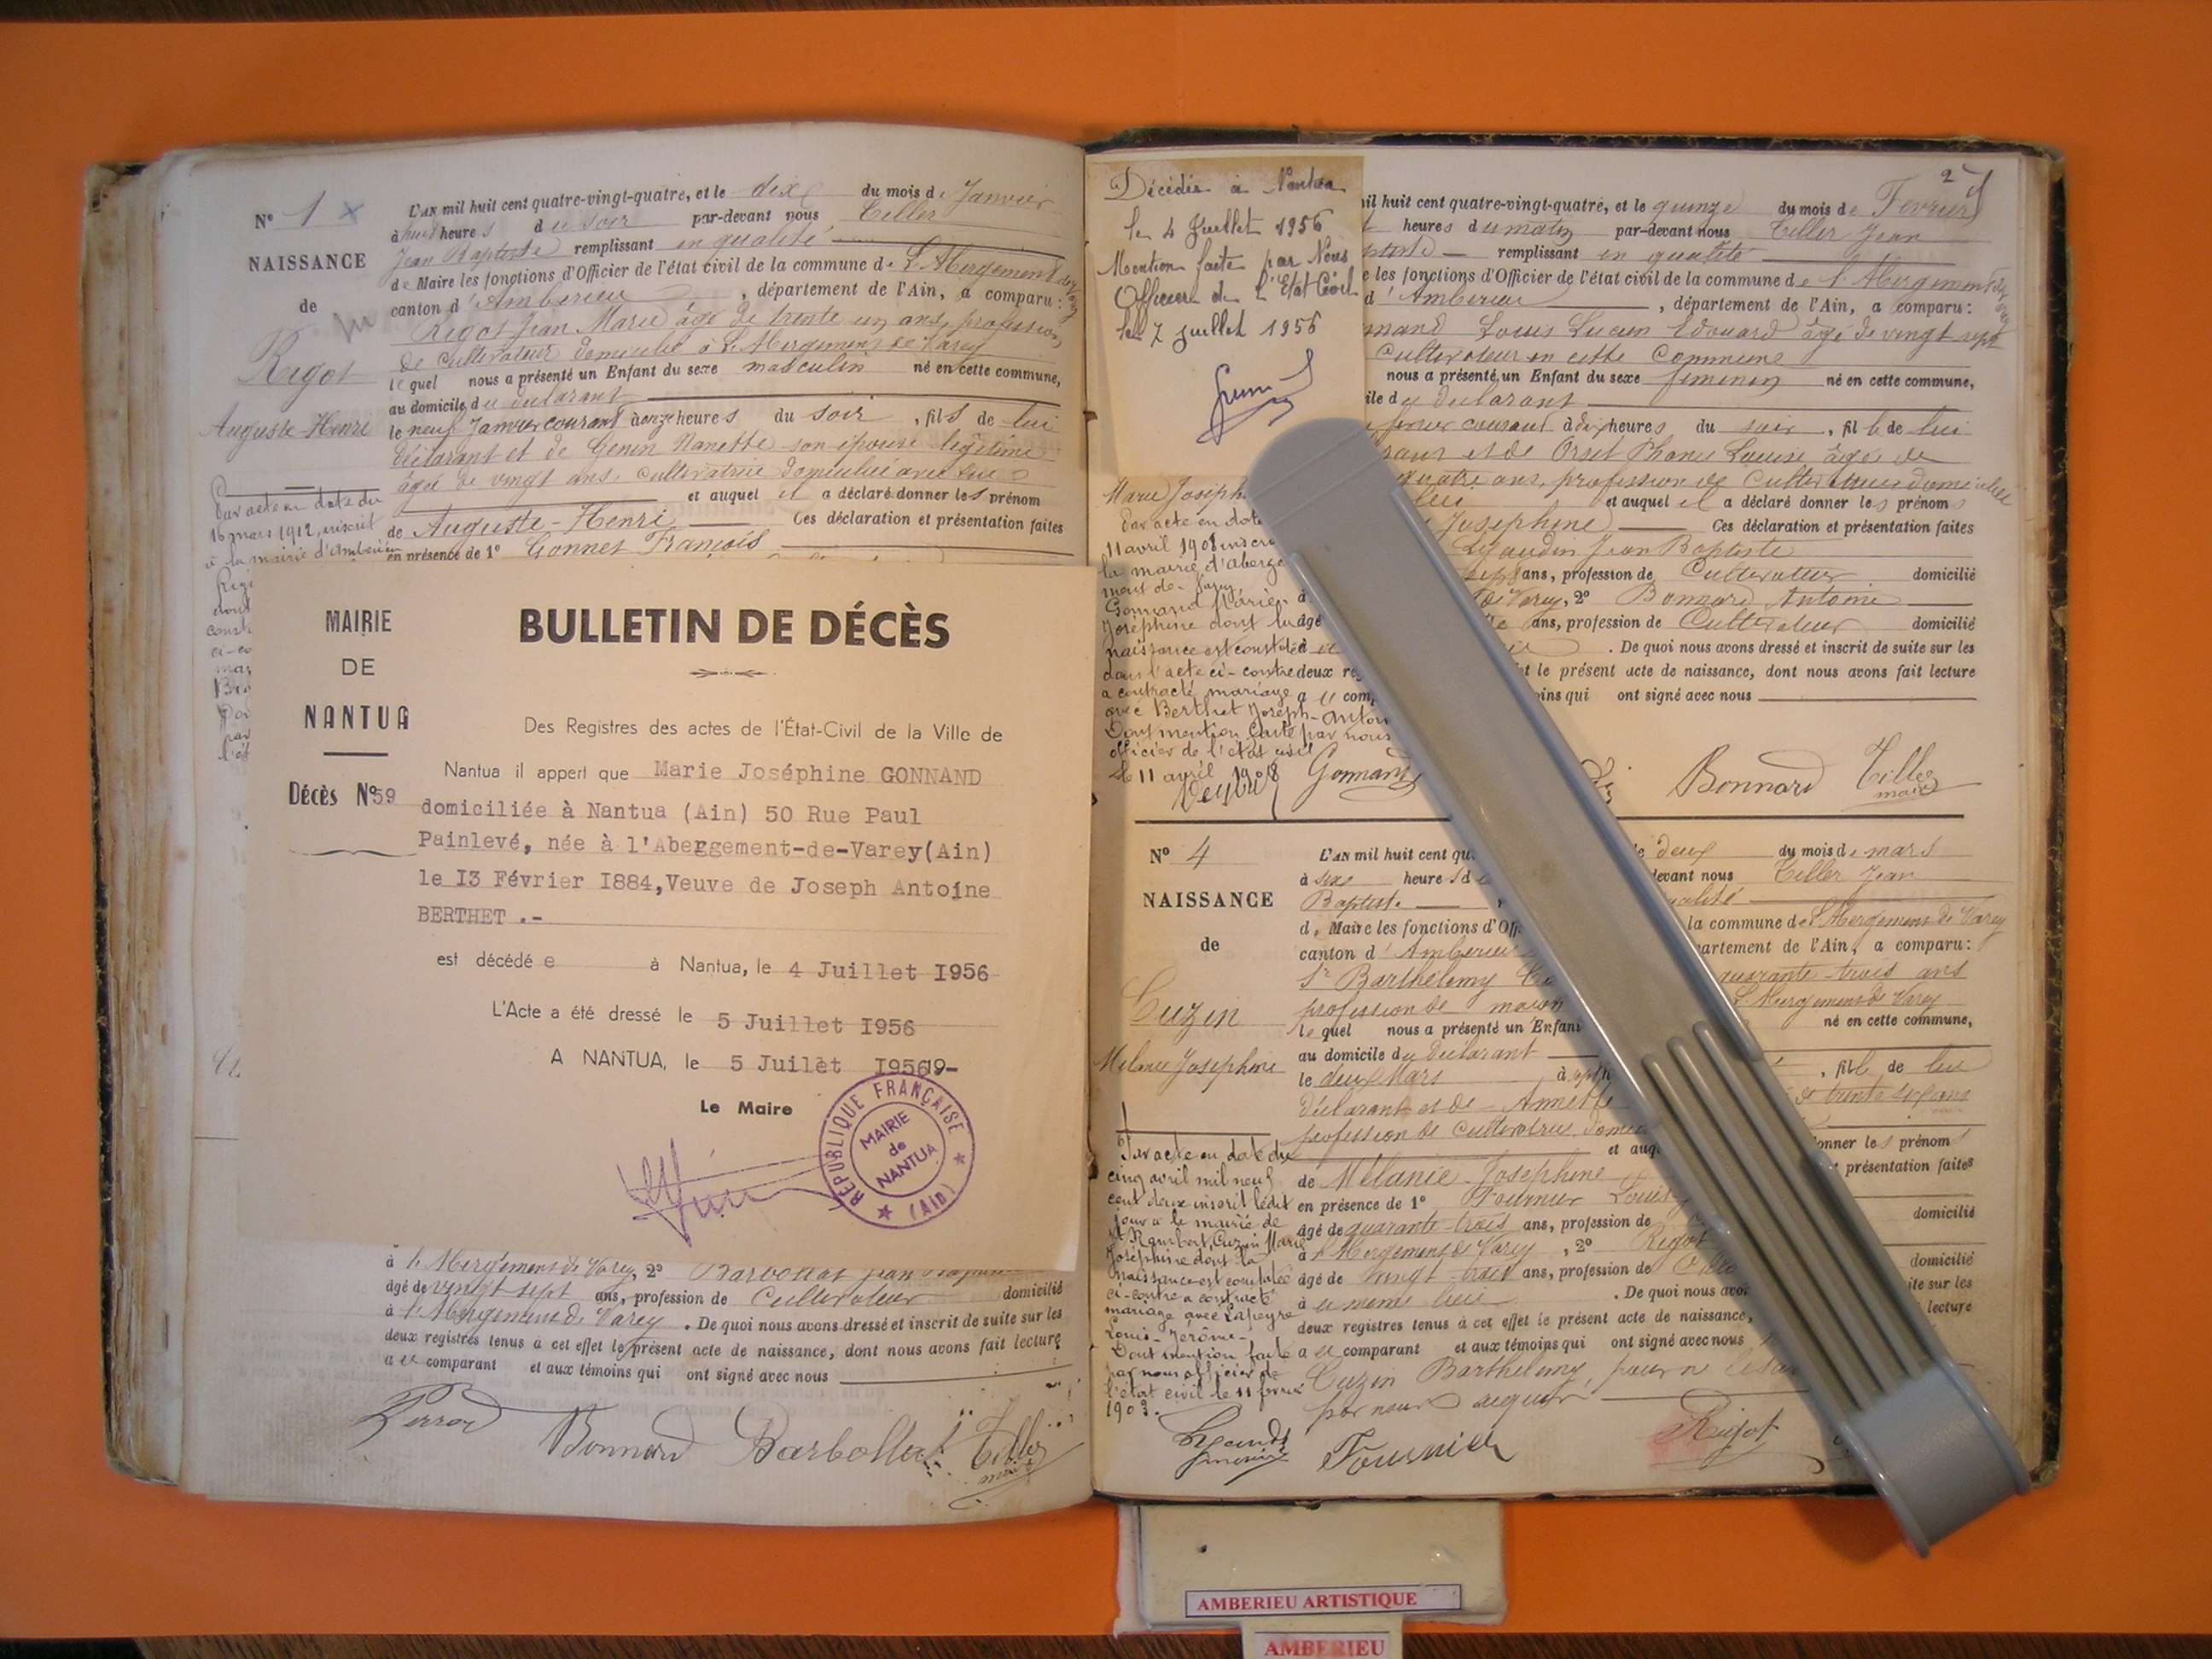 Nº 1
NAISSANCE
de
Rigot
Auguste-Henri
Par acte en date du
16 mars 1912, inscrit
à la mairie d'Ambérieu
L'AN mil huit cent quatre-vingt-quatre, et le dix du mois de Janvier
à heures du soir par-devant nous Tiller
Jean Baptiste remplissant en qualité
de Maire les fonctions d'Officier de l'état civil de la commune de L'Abergement de Varey
canton d'Amberieu, département de l'Ain, a comparu:
Rigot Jean Marie âgé de trente un ans, profession
de Cultivateur domicilié à L'Abergement de Varey
lequel nous a présenté un Enfant du sexe masculin né en cette commune,
au domicile du déclarant
le neuf Janvier courant à onze heures du soir, fils de lui
déclarant et de Genin Nanette son épouse légitime
âgée de vingt ans, cultivatrice domiciliée avec lui
et auquel il a déclaré donner les prénom
de Auguste-Henri Ces déclaration et présentation faites
en présence de 1º Gonnet François
MAIRIE
DE
NANTUA
Décès Nº59
BULLETIN DE DÉCÈS
Des Registres des actes de l'État-Civil de la Ville de
Nantua il appert que Marie Joséphine GONNAND
domiciliée à Nantua (Ain) 50 Rue Paul
Painlevé, née à l'Abeggement-de-Varey(Ain)
le I3 Février I884,Veuve de Joseph Antoine
BERTHET .-
est décédé e à Nantua, le 4 Juillet I956
L'Acte a été dressé le 5 Juillet I956
A NANTUA, le 5 Juilèt I95619-
Le Maire
RÉPUBLIQUE FRANÇAISE
MAIRIE
de
NANTUA
(Ain)
à l'Abergement de Varey, 2º Barbollat Jean
âgé de vingt sept ans, profession de Cultivateur domicilié
à l'Abergement de Varey. De quoi nous avons dressé et inscrit de suite sur les
deux registres tenus à cet effet le présent acte de naissance, dont nous avons fait lecture
au comparant et aux témoins qui ont signé avec nous
Perrod Bonnard Barbollat Tiller
maire
2
Décédée à Nantua
le 4 Juillet 1956
Mention faite par Nous
Officier de l'Etat Civil
le 7 juillet 1956
il huit cent quatre-vingt-quatre, et le quinze du mois de Fevrier
heures du matin par-devant nous Tiller Jean
remplissant en qualité
e les fonctions d'Officier de l'état civil de la commune de l'Abergement de
d'Amberieu, département de l'Ain, a comparu:
nand Louis Lucien Edouard âgé de vingt sept
Cultivateur en cette Commune
nous a présenté un Enfant du sexe feminin né en cette commune,
ile du déclarant
courant à dix heures du soir, fille de lui
et de Orset Louise âgée de
quatre ans, profession de Cultivatrice domiciliée
lui et auquel il a déclaré donner les prénoms
Josephine Ces déclaration et présentation faites
Jean Baptiste
sept ans, profession de Cultivateur domicilié
de Varey, 2º Bonnard Antoine
ans, profession de Cultivateur domicilié
. De quoi nous avons dressé et inscrit de suite sur les
et le présent acte de naissance, dont nous avons fait lecture
oins qui ont signé avec nous
Marie Joséph
Par acte en date
11 avril 1908 inscr
la mairie d'aberge
ment-de-Varey
Gonnand Marie-
Joséphine dont la
naissance est constatée
dans l'acte ci-contre
a contracté mariage
avec Berthet Joseph-Antoi
Dont mention faite par nous
officier de l'état civil
le 11 avril 1908
Gonnand
Bonnard Tiller
maire
Nº 4
NAISSANCE
de
Cuzin
Mélanie Josephine
L'AN mil huit cent qu
le deux du mois de mars
à six heures d
devant nous Tiller Jean
Baptiste
qualité
de Maire les fonctions d'Off
la commune de l'Abergement de Varey
canton d'Amberieu
partement de l'Ain, a comparu:
Sr Barthélemy Cu
quarante-trois ans
profession de maçon
l'Abergement de Varey
lequel nous a présenté un Enfant
né en cette commune,
au domicile du déclarant
le deux Mars à sept
, fille de lui
déclarant et de Annette
de trente six ans
profession de Cultivatrice domi
et auq
donner les prénoms
de Mélanie Josephine
présentation faites
en présence de 1º Fournier Louis
domicilié
âgé de quarante-trois ans, profession de
à l'Abergement de Varey, 2º Rigot
domicilié
âgé de vingt trois ans, profession de
ite sur les
à ce même lieu. De quoi nous avon
lecture
deux registres tenus à cet effet le présent acte de naissance,
au comparant et aux témoins qui ont signé avec nous
Cuzin Barthélemy, pour ne
par nous
Par acte en date du
cinq avril mil neuf
cent deux inscrit ledit
jour à la mairie de
St Rambert, Cuzin Marie
Joséphine dont la
naissance est constatée
ci-contre a contracté
mariage avec Lapeyre
Louis-Jérôme-,
Dont mention faite
par nous officier de
l'état civil le 11 février
1903.
Fournier
Rigot
AMBERIEU ARTISTIQUE
AMBERIEU